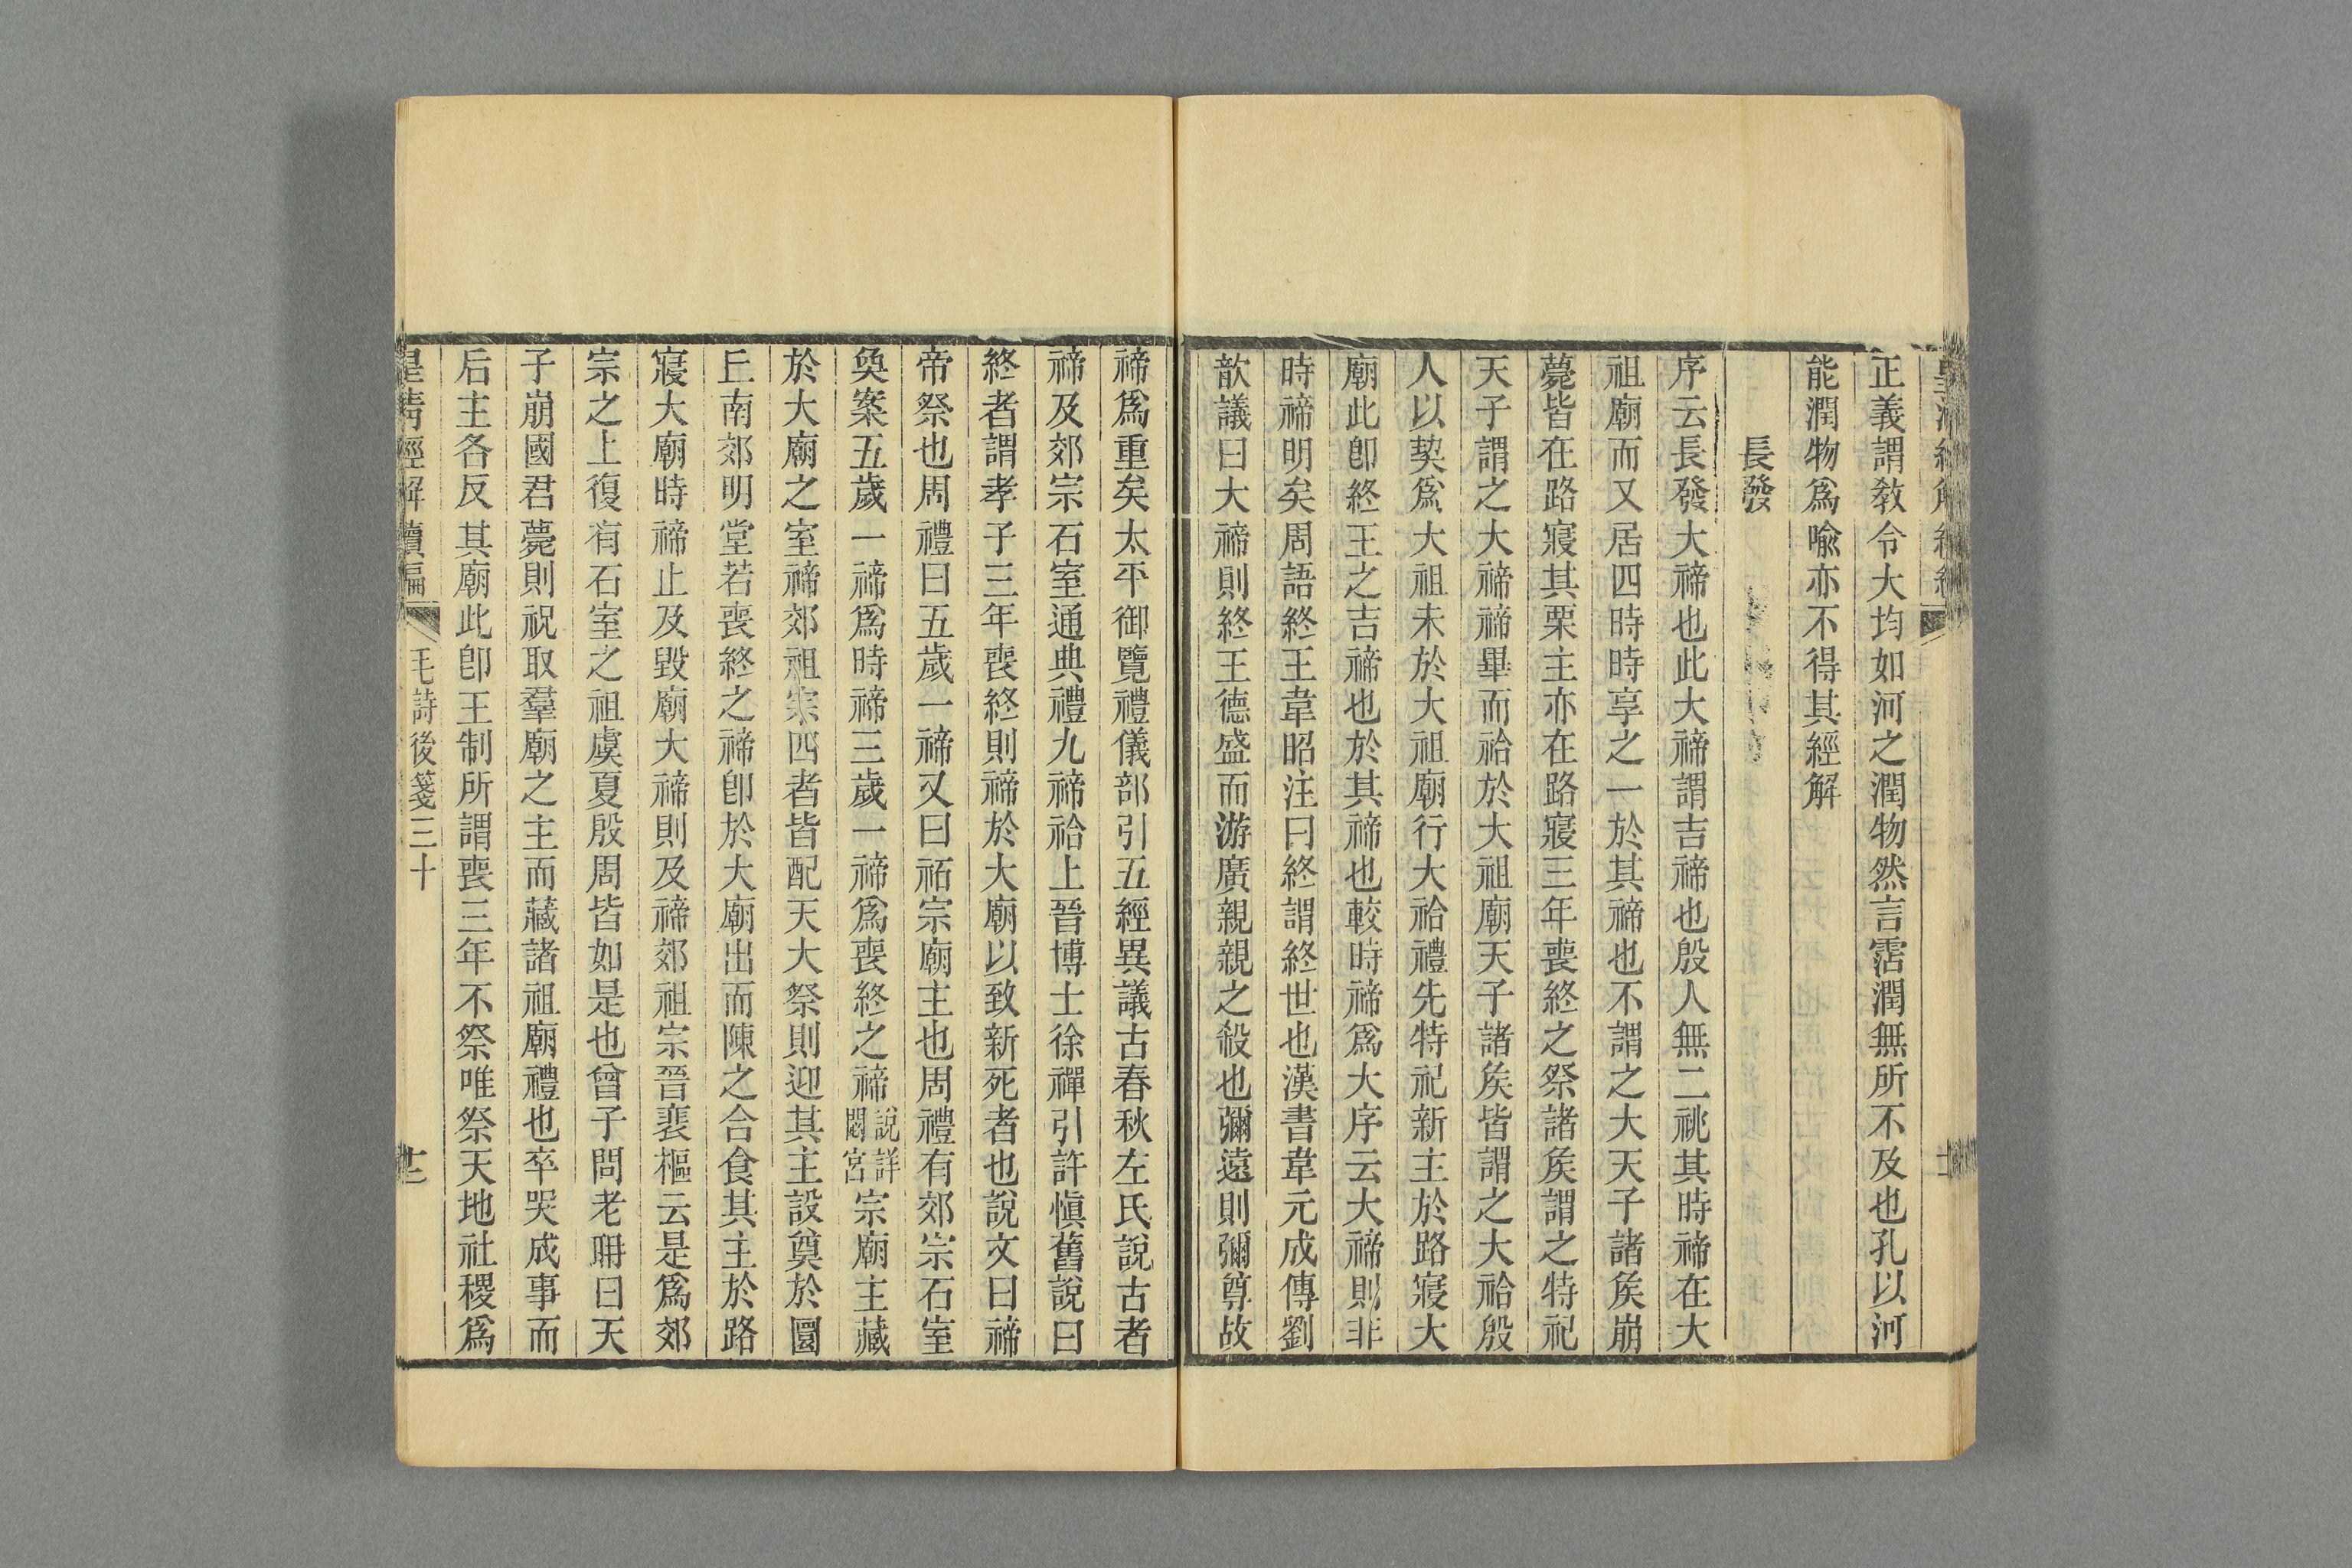 正義謂敎令大均如河之潤物然言霑潤無所不及也孔以河
能潤物爲喩亦不得其經解
長發
序云長發大禘也此大禘謂吉禘也殷人無二祧其時禘在大
祖廟而又居四時時享之一於其禘也不謂之大天子諸矦崩
薨皆在路寢其栗主亦在路寢三年喪終之祭諸矦謂之特祀
天子謂之大禘禘畢而祫於大祖廟天子諸矦皆謂之大祫殷
人以契爲大祖未於大祖廟行大祫禮先特祀新主於路寢大
廟此卽終王之吉禘也於其禘也較時禘爲大序云大禘則非
時禘明矣周語終王韋昭注曰終謂終世也漢書韋元成傳劉
歆議曰大禘則終王德盛而游廣親親之殺也彌遠則彌尊故
禘爲重矣太平御覽禮儀部引五經異議古春秋左氏說古者
禘及郊宗石室通典禮九禘祫上晉博士徐禪引許愼舊說曰
終者謂孝子三年喪終則禘於大廟以致新死者也說文曰禘
帝祭也周禮曰五歲一禘又曰祏宗廟主也周禮有郊宗石室
奐案五歲一禘爲時禘三歲一禘爲喪終之禘說詳閟宮宗廟主藏
於大廟之室禘郊祖宗四者皆配天大祭則迎其主設奠於圜
丘南郊明堂若喪終之禘卽於大廟出而陳之合食其主於路
寢大廟時禘止及毀廟大禘則及禘郊祖宗晉裴樞云是爲郊
宗之上復有石室之祖虞夏殷周皆如是也曾子問老耼曰天
子崩國君薨則祝取羣廟之主而藏諸祖廟禮也卒哭成事而
后主各反其廟此卽王制所謂喪三年不祭唯祭天地社稷爲
皇淸經解續編 毛詩後箋三十